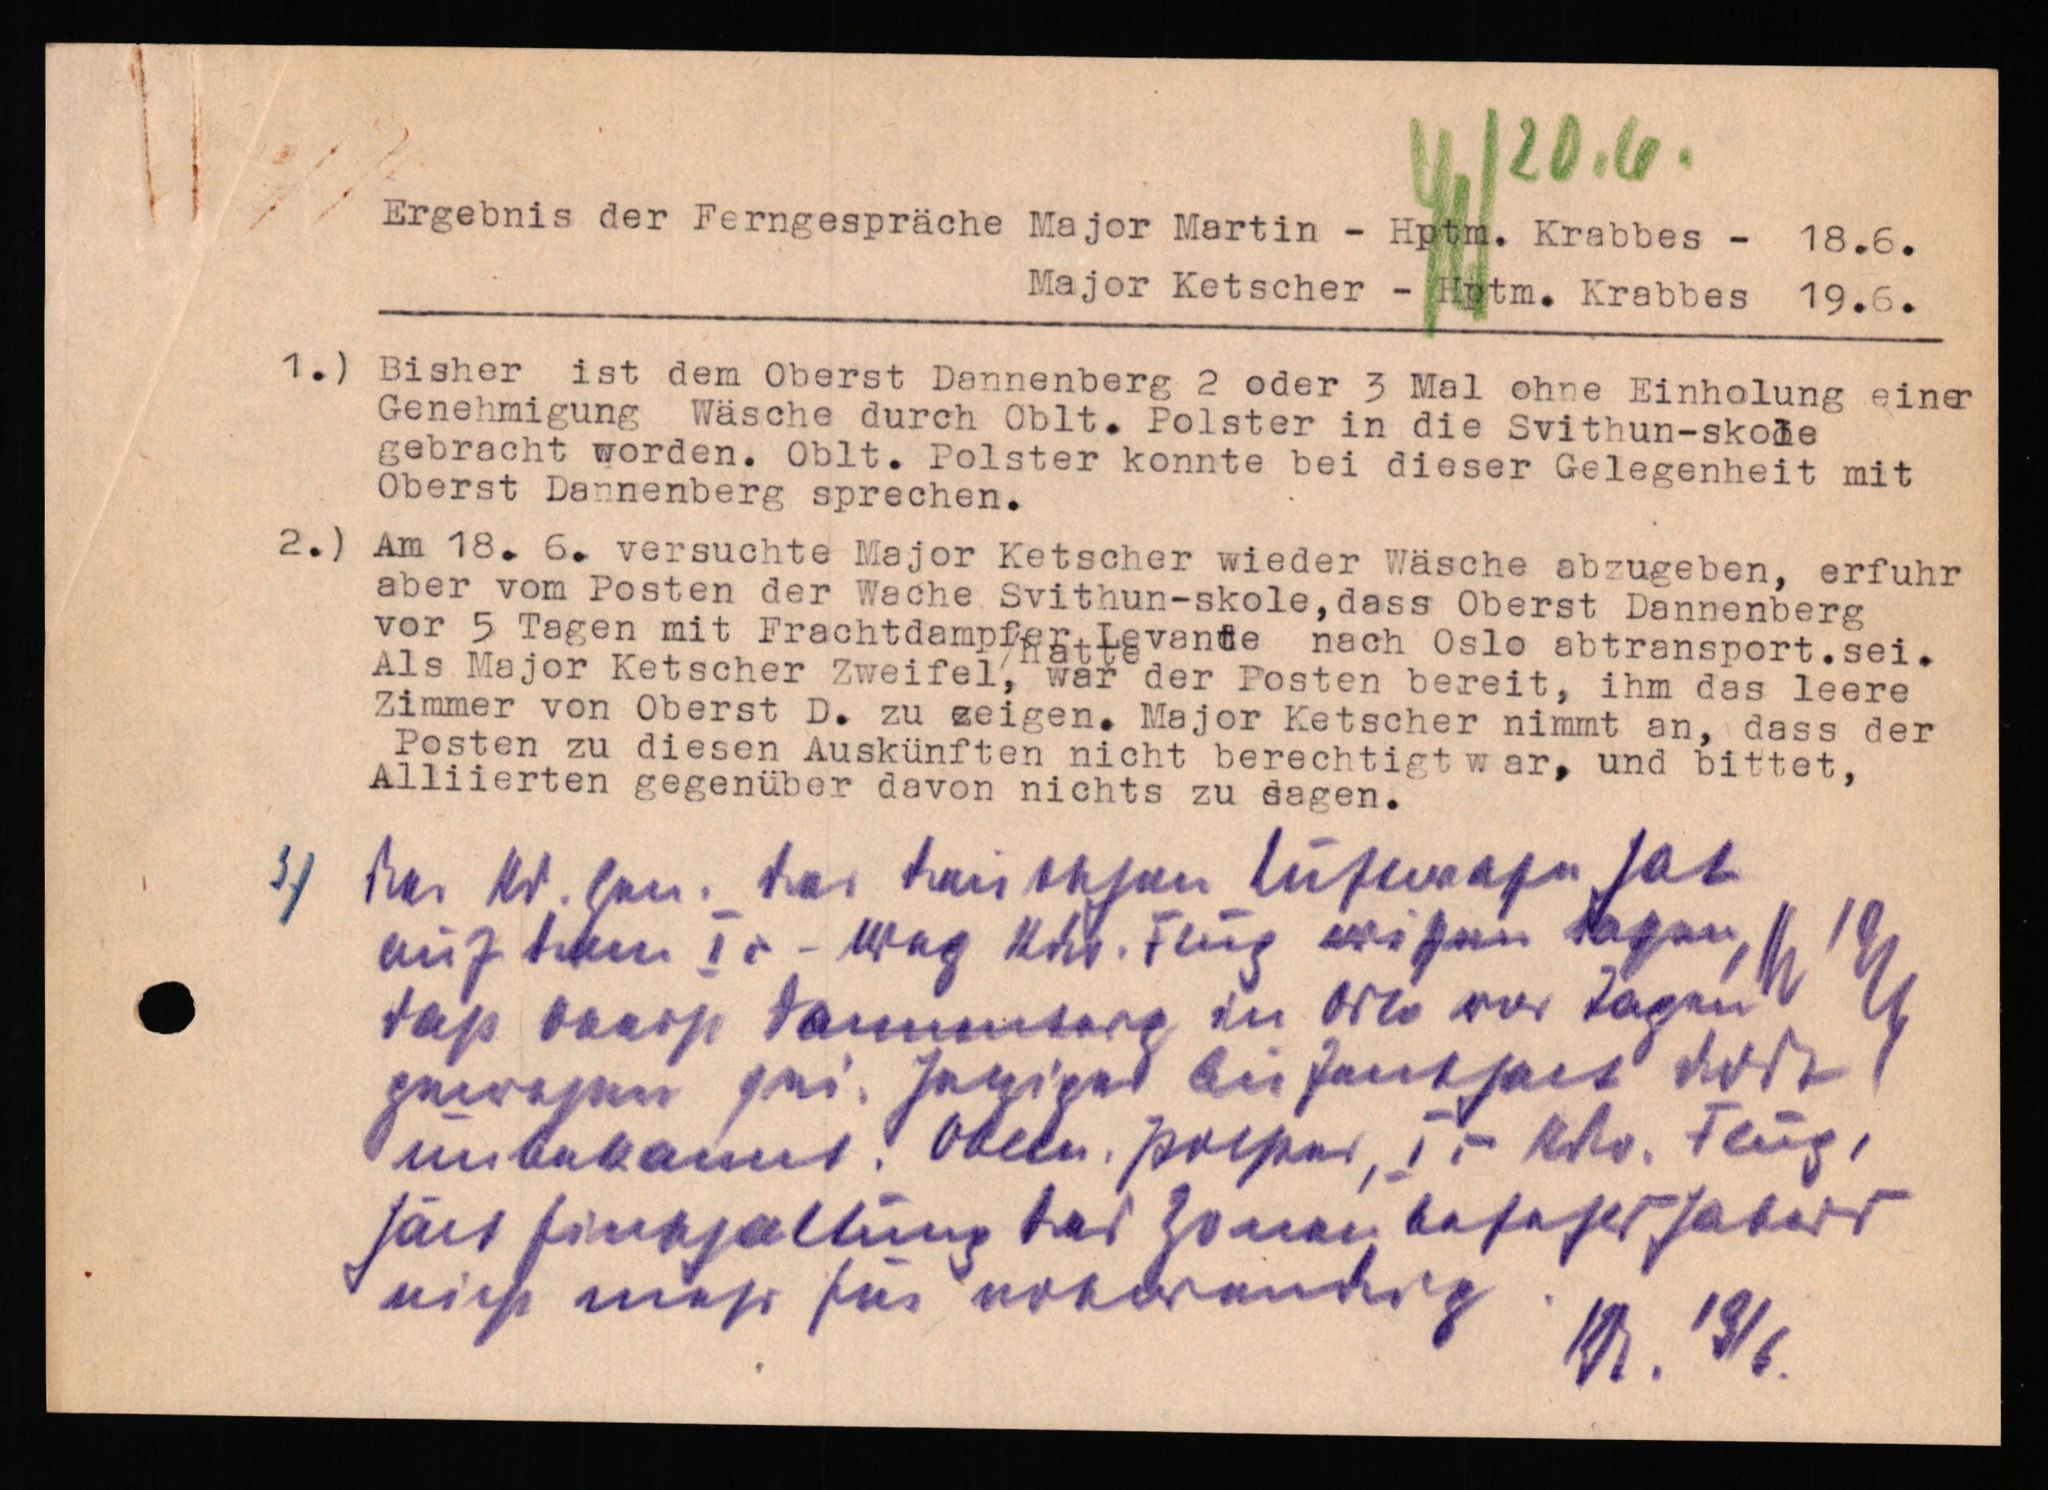 20.6.
Ergebnis der Ferngespräche Major Martin - Hptm. Krabbes - 18.6.
Major Ketscher - Hptm. Krabbes 19.6.
1.) Bisher ist dem Oberst Dannenberg 2 oder 3 Mal ohne Einholung einer
Genehmigung Wäsche durch Oblt. Polster in die Svithun-skole
gebracht worden. Oblt. Polster konnte bei dieser Gelegenheit mit
Oberst Dannenberg sprechen.
2.) Am 18. 6. versuchte Major Ketscher wieder Wäsche abzugeben, erfuhr
aber vom Posten der Wache Svithun-skole,dass Oberst Dannenberg
vor 5 Tagen mit Frachtdampfer Levante nach Oslo abtransport.sei.
/hatte
Als Major Ketscher Zweifel, war der Posten bereit, ihm das leere
Zimmer von Oberst D. zu zeigen. Major Ketscher nimmt an, dass der
Posten zu diesen Auskünften nicht berechtigt war, und bittet,
Alliierten gegenüber davon nichts zu sagen.
3) Der Kd. Gen. der deutschen Luftwaffe hat
auf dem Ic - Weg Kdo. Flug wissen lassen,
daß Oberst Dannenberg in Oslo vor Tagen
gewesen sei. Jetziger Aufenthalt dort
unbekannt. Obltn. Polster, Ic Kdo. Flug,
hält Einschaltung des Zonenbefehlshabers
nicht mehr für notwendig.
Kr. 19/6.